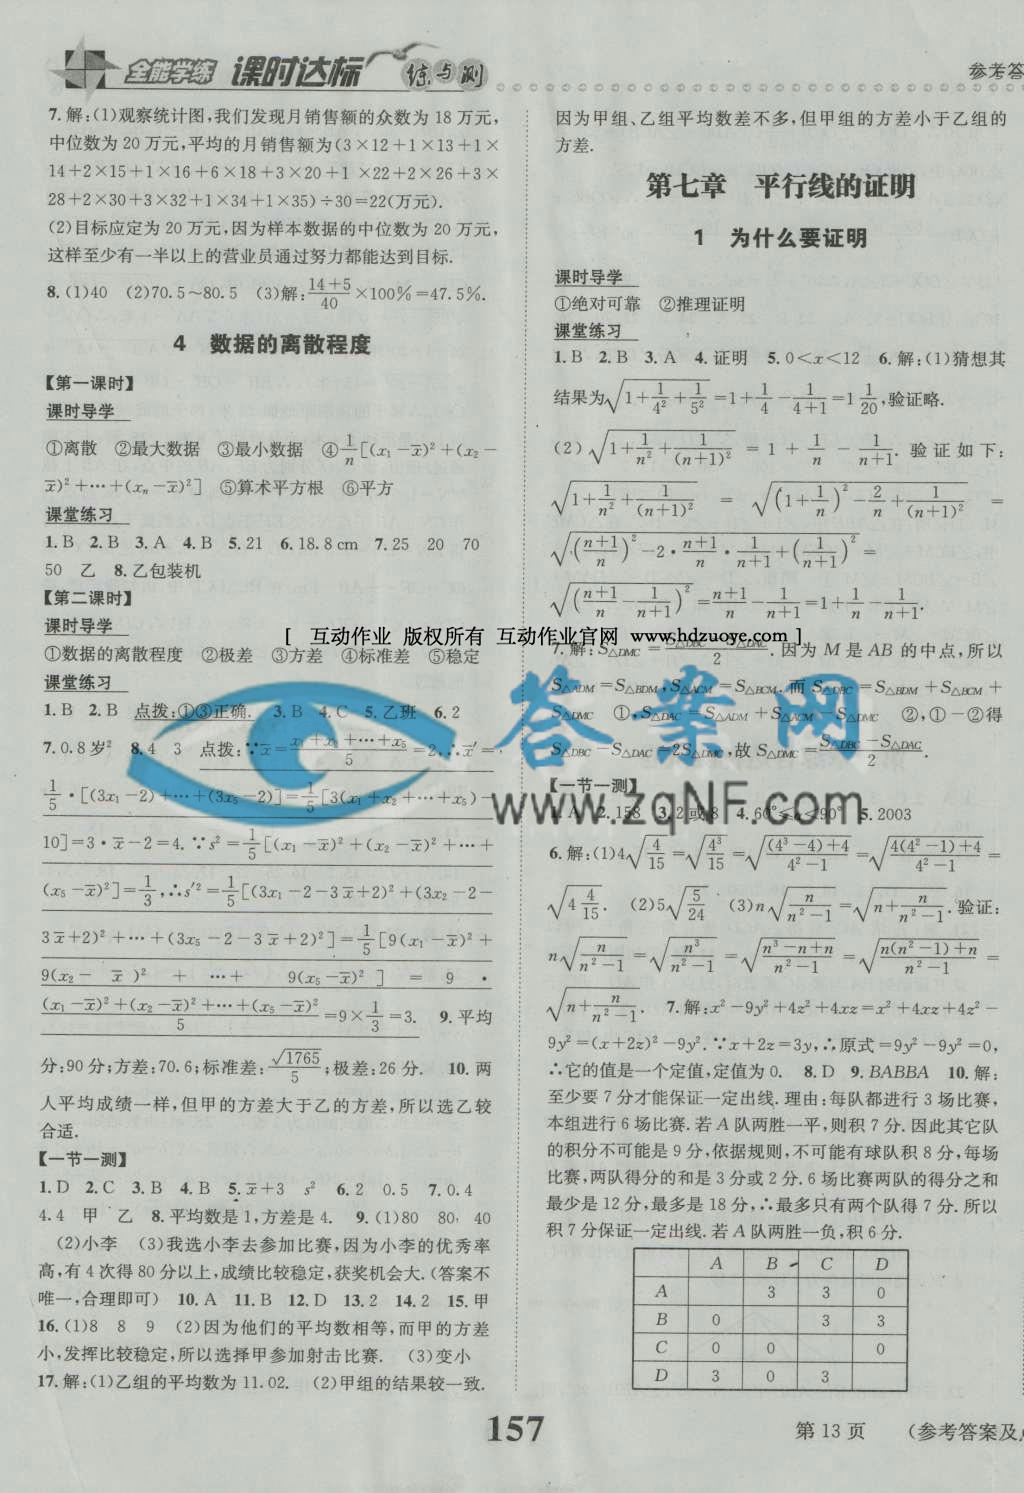 全能学练 课时达标 练与测
参考答
7.解:(1)观察统计图,我们发现月销售额的众数为18万元,
中位数为20万元,平均的月销售额为(3×12+1×13+1×
14+2×15+1×16+6×18+3×20+1×22+2×26+3×
28+2×30+3×32+1×34+1×35)÷30=22(万元).
(2)目标应定为20万元,因为样本数据的中位数为20万元,
这样至少有一半以上的营业员通过努力都能达到目标.
8.(1)40 (2)70.5~80.5 (3)解:(14+5)/40×100%=47.5%.
4 数据的离散程度
【第一课时】
课时导学
①离散 ②最大数据 ③最小数据 ④1/n[(x₁-x̄)²+(x₂-
x̄)²+…+(xₙ-x̄)²] ⑤算术平方根 ⑥平方
课堂练习
1.B 2.B 3.A 4.B 5.21 6.18.8cm 7.25 20 70
50 乙 8.乙包装机
【第二课时】
课时导学
①数据的离散程度 ②极差 ③方差 ④标准差 ⑤稳定
课堂练习
1.B 2.B 点拨:①③正确. 3.B 4.C 5.乙班 6.2
7.0.8岁² 8.4 3 点拨:∵x̄=(x₁+x₂+…+x₅)/5=2,∴x̄′=
1/5·[(3x₁-2)+…+(3x₅-2)]=1/5[3(x₁+x₂+…+x₅)-
10]=3·x̄-2=4.∵s²=1/5[(x₁-x̄)²+(x₂-x̄)²+…+
(x₅-x̄)²]=1/3,∴s′²=1/5[(3x₁-2-3x̄+2)²+(3x₂-2-
3x̄+2)²+…+(3x₅-2-3x̄+2)²]=1/5[9(x₁-x̄)²+
9(x₂-x̄)²+…+9(x₅-x̄)²]=9·
((x₁-x̄)²+(x₂-x̄)²+…+(x₅-x̄)²)/5=9×1/3=3. 9.平均
分:90分;方差:70.6;标准差:√1765/5;极差:26分. 10.两
人平均成绩一样,但甲的方差大于乙的方差,所以选乙较
合适.
【一节一测】
1.D 2.C 3.B 4.B 5.x̄+3 s² 6.2 0.5 7.0.4
4.4 甲 乙 8.平均数是1,方差是4. 9.(1)80 80 40
(2)小李 (3)我选小李去参加比赛,因为小李的优秀率
高,有4次得80分以上,成绩比较稳定,获奖机会大.(答案不
唯一,合理即可) 10.A 11.B 12.D 13.2 14.2 15.甲
16.(1)8 8 9 (2)因为他们的平均数相等,而甲的方差
小,发挥比较稳定,所以选择甲参加射击比赛. (3)变小
17.解:(1)乙组的平均数为11.02. (2)甲组的结果较一致.
因为甲组、乙组平均数差不多,但甲组的方差小于乙组的
方差.
第七章 平行线的证明
1 为什么要证明
课时导学
①绝对可靠 ②推理证明
课堂练习
1.B 2.B 3.A 4.证明 5.0<x<12 6.解:(1)猜想其
结果为√(1+1/4²+1/5²)=1+1/4-1/(4+1)=1 1/20,验证略.
(2)√(1+1/n²+1/(n+1)²)=1+1/n-1/(n+1). 验证如下:
√(1+1/n²+1/(n+1)²)=√((1+1/n)²-2/n+1/(n+1)²)=
√(((n+1)/n)²-2·(n+1)/n·1/(n+1)+(1/(n+1))²)=
√((n+1)/n-1/(n+1))²=(n+1)/n-1/(n+1)=1+1/n-1/(n+1).
[ 互动作业 版权所有 互动作业官网 www.hdzuoye.com ]
7.解:S△DMC=(S△DBC-S△DAC)/2.因为M是AB的中点,所以
S△ADM=S△BDM,S△ACM=S△BCM.而S△DBC=S△BDM+S△BCM+
S△DMC ①,S△DAC=S△ADM+S△ACM-S△DMC ②,①-②得
S△DBC-S△DAC=2S△DMC,故S△DMC=(S△DBC-S△DAC)/2.
答案网
www.zqNF.com
【一节一测】
1.A 2.158 3.2或8 4.60°≤α<90° 5.2003
6.解:(1)4√(4/15)=√(4³/15)=√(((4³-4)+4)/(4²-1))=√((4(4²-1)+4)/(4²-1))=
√(4 4/15). (2)5√(5/24) (3)n√(n/(n²-1))=√(n+n/(n²-1)).验证:
n√(n/(n²-1))=√(n³/(n²-1))=√((n³-n+n)/(n²-1))=√((n(n²-1)+n)/(n²-1))=
√(n+n/(n²-1)). 7.解:x²-9y²+4z²+4xz=x²+4xz+4z²-
9y²=(x+2z)²-9y².∵x+2z=3y,∴原式=9y²-9y²=0,
∴它的值是一个定值,定值为0. 8.D 9.BABBA 10.解:
至少要7分才能保证一定出线.理由:每队都进行3场比赛,
本组进行6场比赛.若A队两胜一平,则积7分.因此其它队
的积分不可能是9分,依据规则,不可能有球队积8分,每场
比赛,两队得分的和是3分或2分.6场比赛两队的得分之和
最少是12分,最多是18分,∴最多只有两个队得7分.所以
积7分保证一定出线.若A队两胜一负,积6分.
A B C D
A 3 3 0
B 0 3 3
C 0 0 0
D 3 0 3
157
第13页 (参考答案及